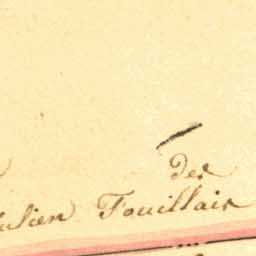 des
ulien Fouillais